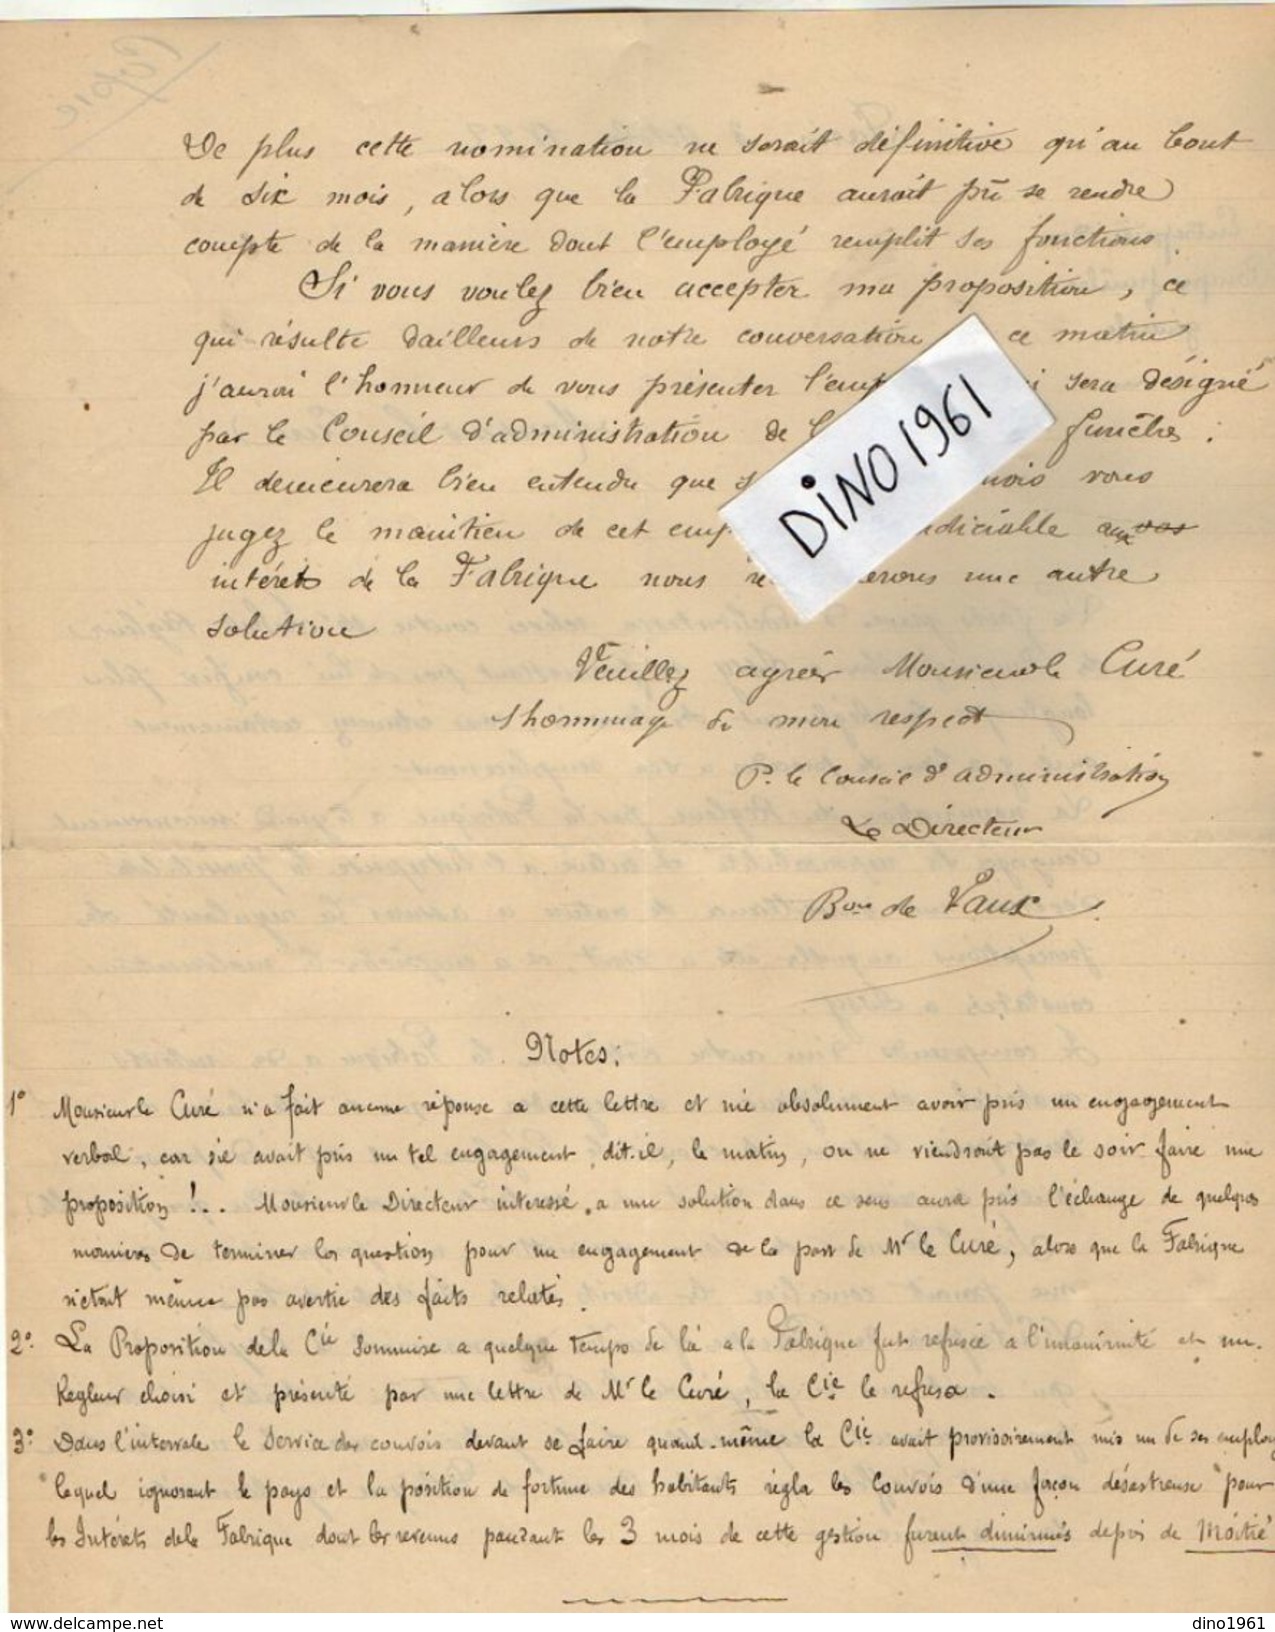 Copie
De plus cette nomination ne serait définitive qu'au bout
de six mois, alors que la Fabrique aurait pû se rendre
compte de la manière dont l'employé remplit ses fonctions.
Si vous voulez bien accepter ma proposition, ce
qui résulte dailleurs de notre conversation ce matin
j'aurai l'honneur de vous présenter l'emp i sera désigné
par le Conseil d'administration de funèbres.
Il demeurera bien entendu que s mois vous
jugez le maintien de cet emp udiciable aux vos
intérêts de la Fabrique nous re cerons une autre
solution
DiNO 1961
Veuillez agréer Monsieur le Curé
l'hommage de mon respect
P. le Conseil d'administration
Le Directeur
Bon de Vaux
Notes:
1° Monsieur le Curé n'a fait aucune réponse a cette lettre et nie absolument avoir pris un engagement
verbal, car s'il avait pris un tel engagement, dit-il, le matin, on ne viendrait pas le soir faire une
proposition !.. Monsieur le Directeur interessé a une solution dans ce sens aura pris l'échange de quelques
manieres de terminer les questions pour un engagement de la part de Mr le Curé, alors que la Fabrique
n'etait même pas avertie des faits relatés.
2° La Proposition de la Cie soumise a quelque temps de là a la Fabrique fut refusée a l'unanimité et un
Regleur choisi et présenté par une lettre de Mr le Curé, la Cie le refusa.
3° Dans l'intervale le service des convois devant se faire quand-même la Cie avait provisoirement mis un de ses employ
lequel ignorant le pays et la position de fortune des habitants régla les Convois d'une façon désastreuse pour
les Intérêts de la Fabrique dont les revenus pendant les 3 mois de cette gestion furent diminués depuis de Moitié
www.delcampe.net
dino1961